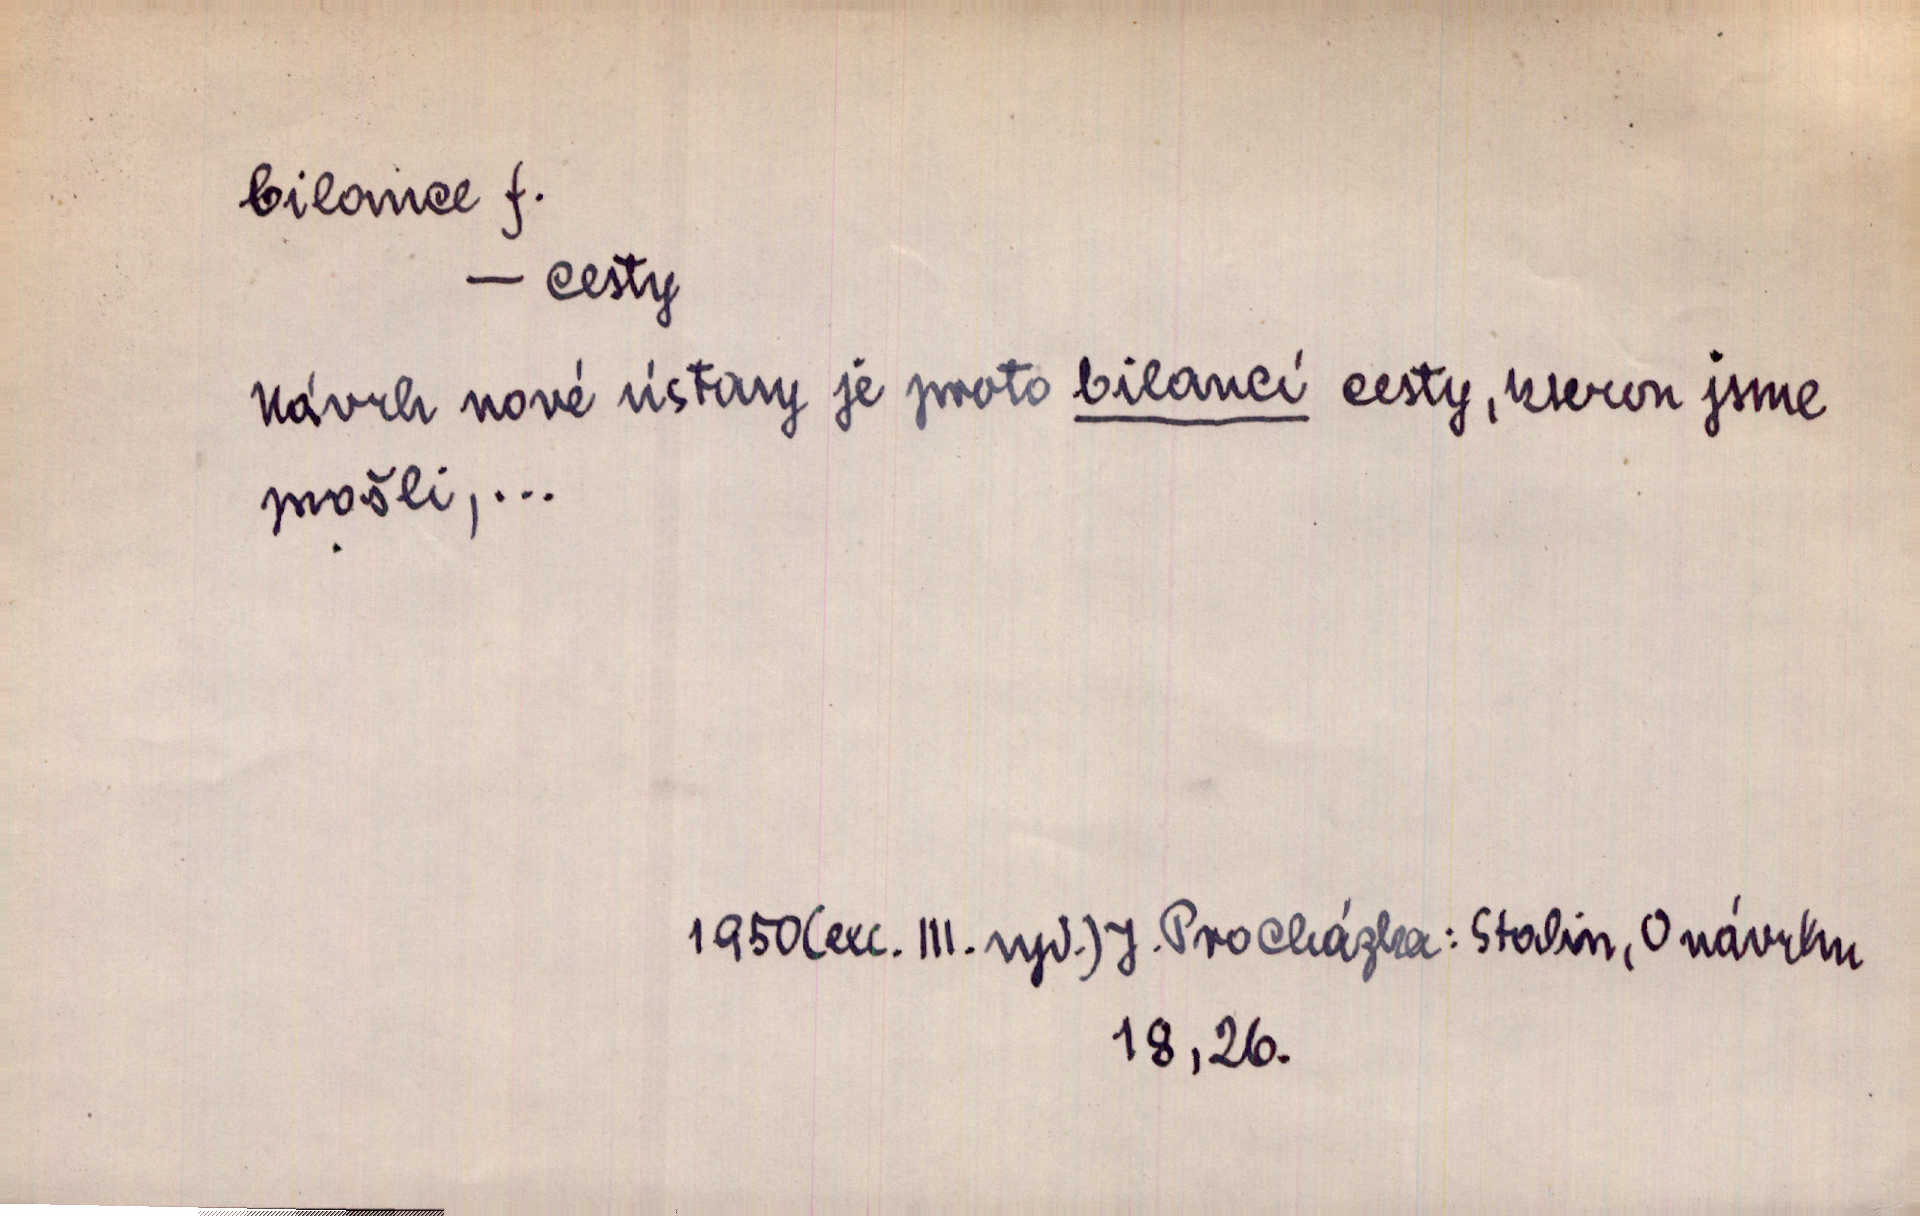 bilance f.
— cesty
Návrh nové ústavy je proto bilancí cesty, kterou jsme
prošli, ...
1950 (exc. III. vyd.) J. Procházka: Stalin, O návrhu
18, 26.